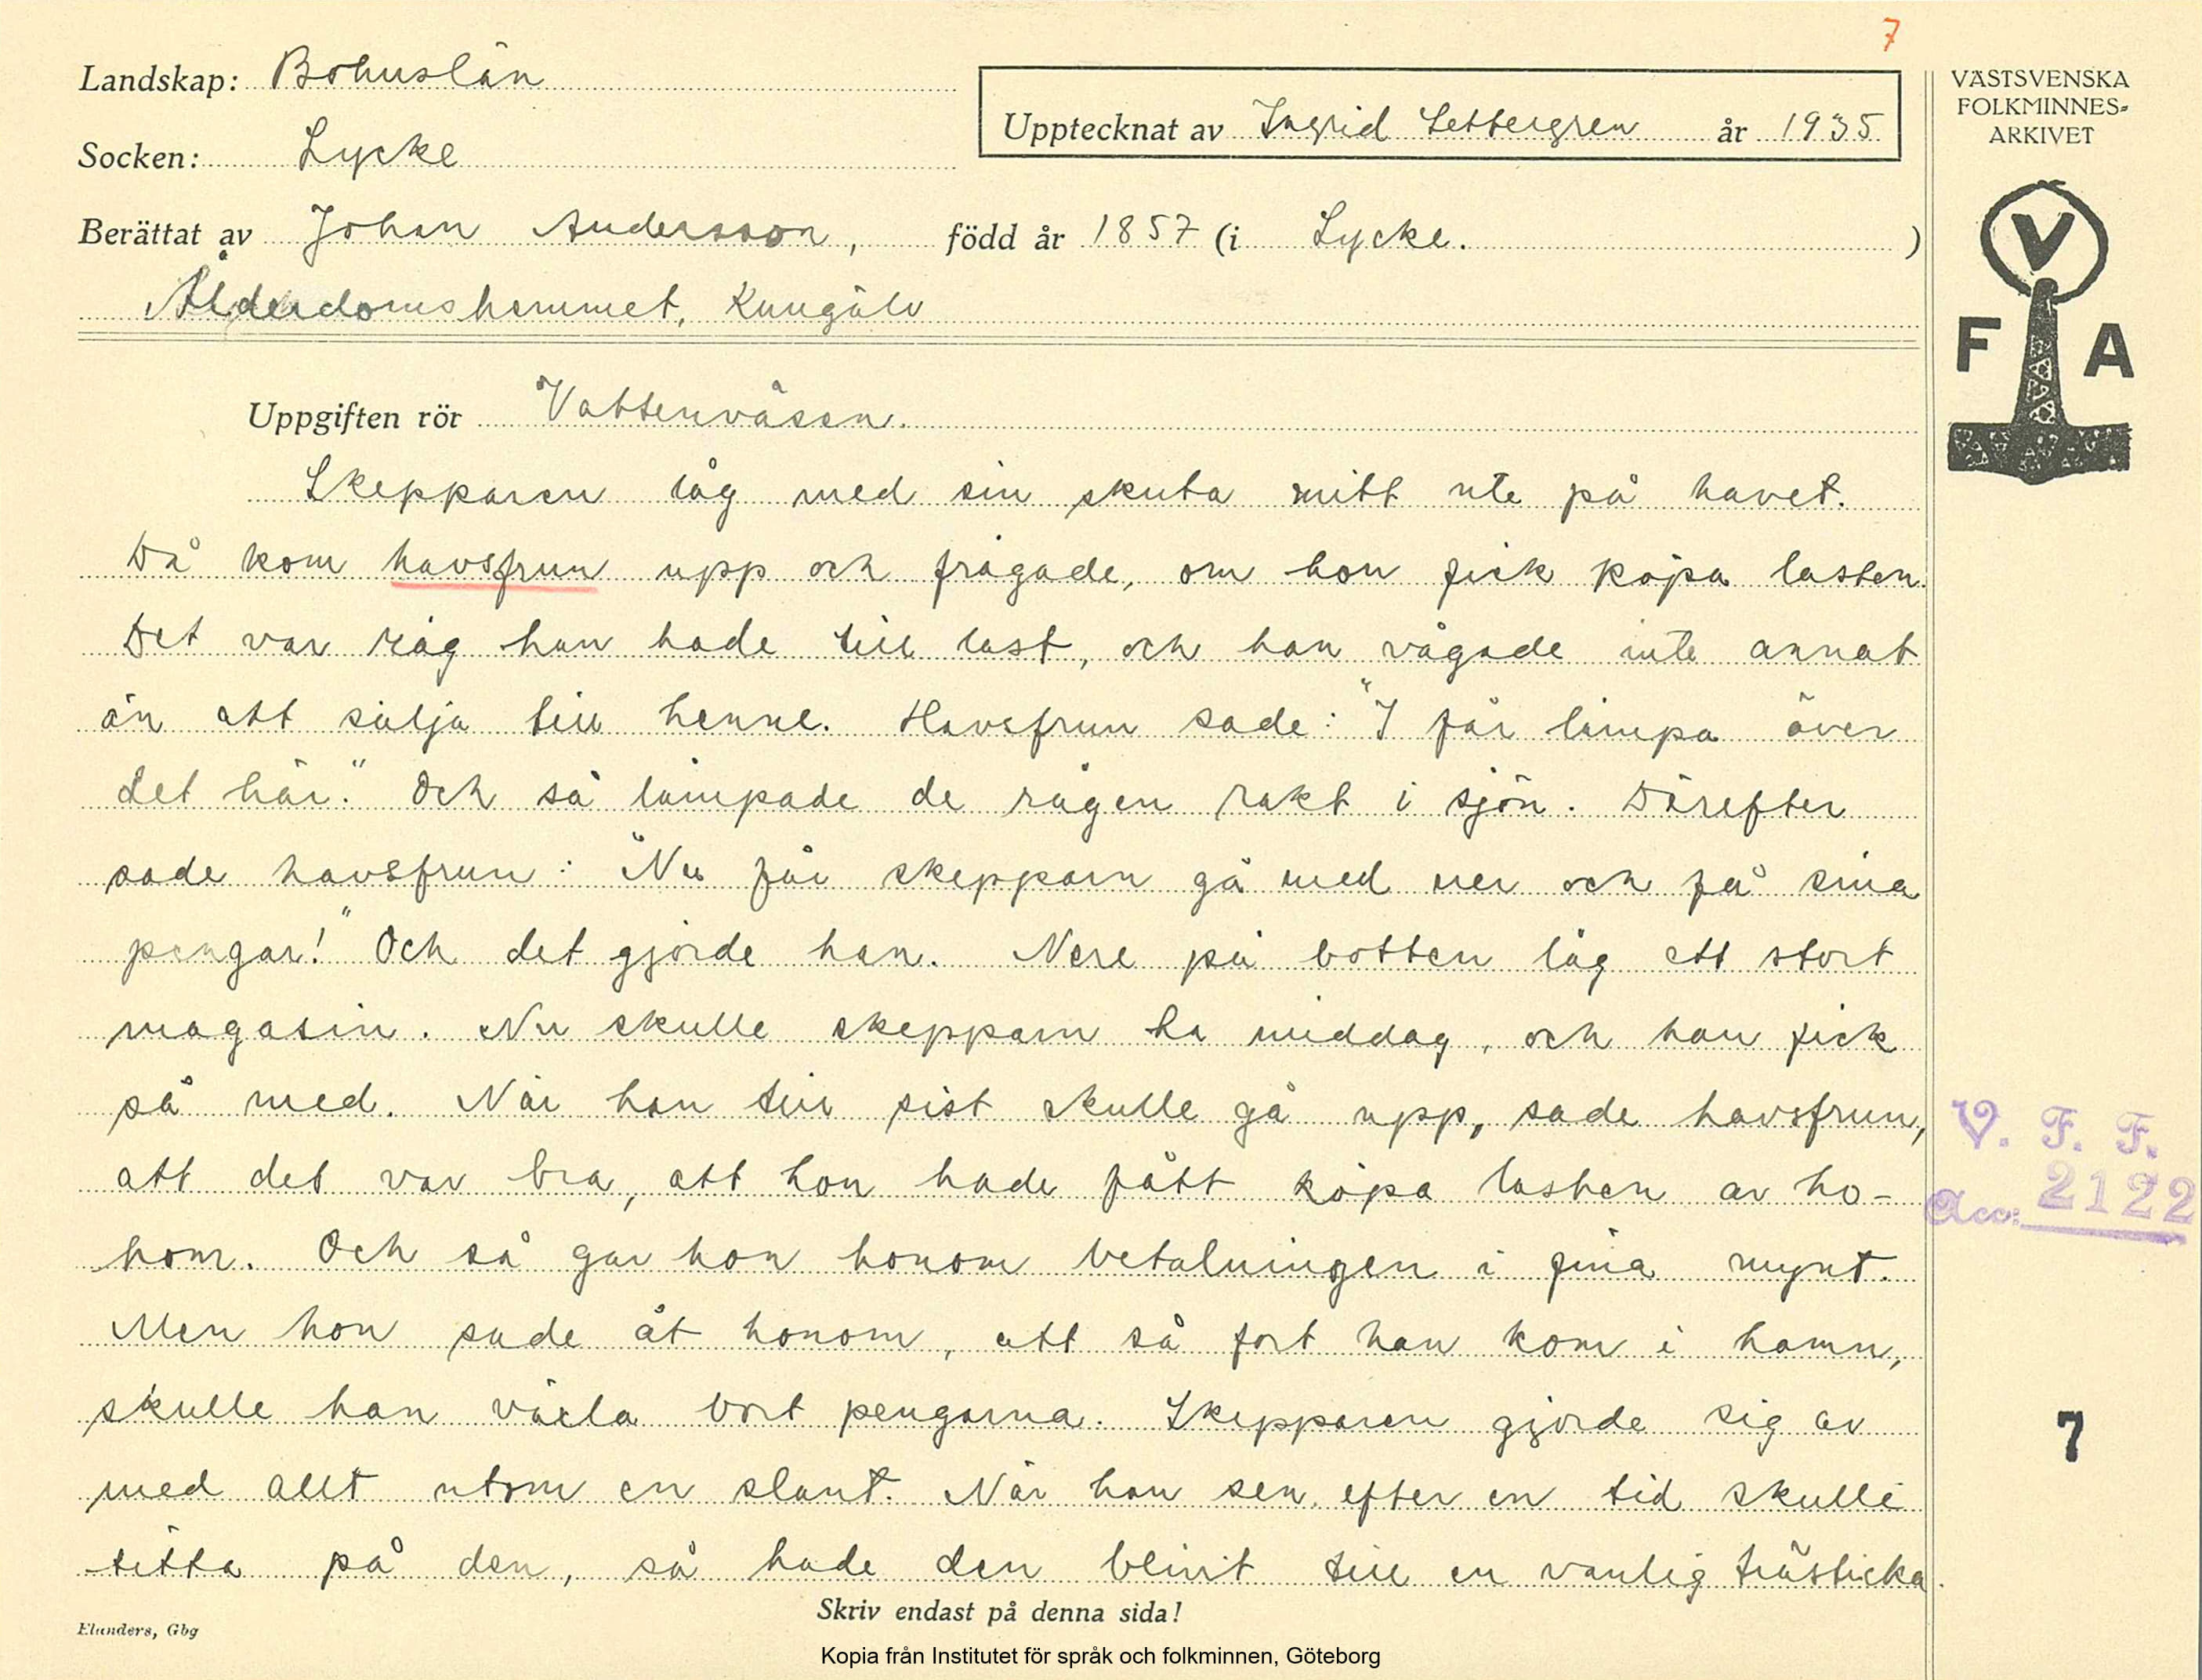 7
Landskap: Bohuslän
Socken: Lycke
Upptecknat av Ingrid Settergren år 1935
Berättat av Johan Andersson, född år 1857 (i Lycke. )
Ålderdomshemmet, Kungälv
VÄSTSVENSKA
FOLKMINNES-
ARKIVET
V
F A
Uppgiften rör Vattenväsen.
Skepparen låg med sin skuta mitt ute på havet.
Då kom havsfrun upp och frågade, om hon fick köpa lasten.
Det var råg han hade till last, och han vågade inte annat
än att sälja till henne. Havsfrun sade: "I får lämpa över
det här." Och så lämpade de rågen rakt i sjön. Därefter
sade havsfrun: "Nu får skepparn gå med ner och få sina
pengar!" Och det gjorde han. Nere på botten låg ett stort
magasin. Nu skulle skepparn ha middag, och han fick
så med. När han till sist skulle gå upp, sade havsfrun,
att det var bra, att hon hade fått köpa lasten av ho-
hom. Och så gav hon honom betalningen i fina mynt.
Men hon sade åt honom, att så fort han kom i hamn,
skulle han växla bort pengarna. Skepparen gjorde sig av
med allt utom en slant. När han sen efter en tid skulle
titta på den, så hade den blivit till en vanlig trästicka.
V. F. F.
Acc: 2122
7
Skriv endast på denna sida!
Elanders, Gbg
Kopia från Institutet för språk och folkminnen, Göteborg